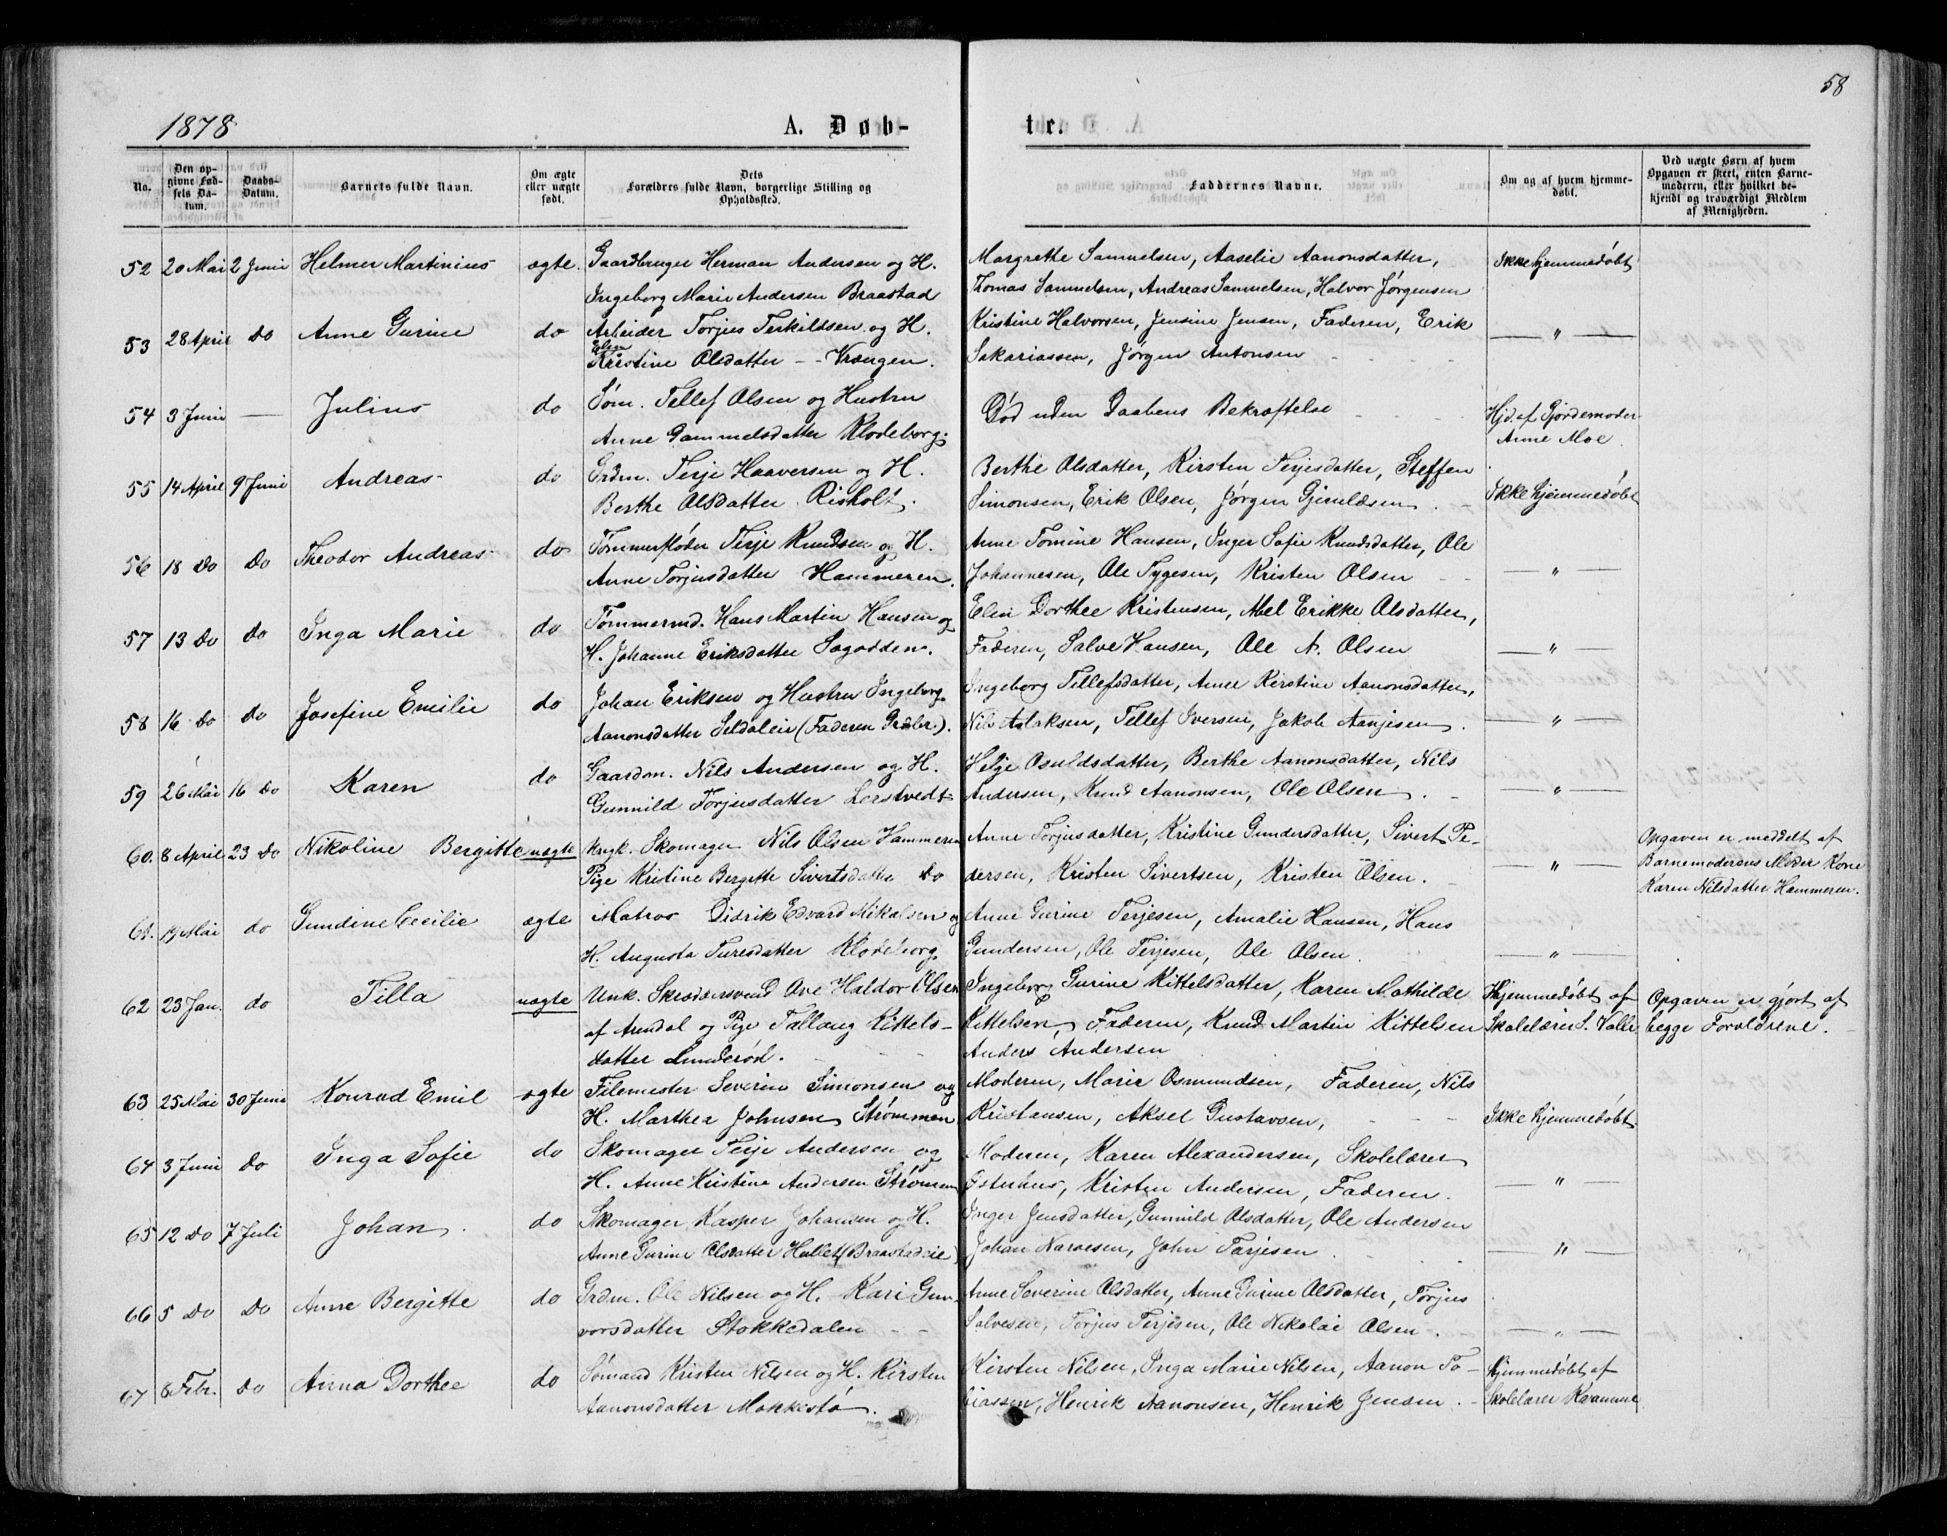 58
1878
A. Døb-
te.
No.
Den op-
givne Fød-
sels Da-
tum.
Daabs-
Datum.
Barnets fulde Navn.
Om ægte
eller uægte
født.
Dets
Forældres fulde Navn, borgerlige Stilling og
Opholdssted.
Faddernes Navne.
Om og af hvem hjemme-
døbt.
Ved uægte Børn af hvem
Opgaven er skeet, enten Barne-
moderen, eller hvilket be-
kjendt og troværdigt Medlem
af Menigheden.
52 20 Mai 2 Juni Helmer Martinius ægte. Gaardbruger Herman Andersen og H. Margrethe Samuelsen, Aaselie Aanonsdatter, Ikke hjemmedøbt
Ingeborg Marie Andersen Braastad Thomas Samuelsen, Andreas Samuelsen, Halvor Jørgensen
53 28 April do Anne Gurine do Arbeider Torjus Terkildsen og H. Kristine Halvorsen, Jensine Jensen, Faderen, Erik — " —
Elen
Kirstine Olsdatter -- Vrængen. Sakariassen, Jørgen Antonsen
54 3 Juni — Julius do Søm. Tellef Olsen og Hustru Død uden Daabens Bekræftelse Hjd. af Gjordemoder
Anne Gammelsdatter Klodeborg. Anne Moe.
55 14 April 9 Juni Andreas do Grdm. Terje Haaversen og H. Berthe Olsdatter, Kirsten Terjesdatter, Steffen
Berthe Olsdatter Risholt. Simonsen, Erik Olsen, Jørgen Gjeruldsen. Ikke hjemmedøbt
56 18 do do Theodor Andreas do Tømmerfløder Terje Knudsen og H. Anne Tomine Hansen, Inger Sofie Knudsdatter, Ole
Anne Torjusdatter Hammeren. Johannesen, Ole Tygesen, Kristen Olsen — " —
57 13 do do Inga Marie do Tømmermd. Hans Martin Hansen og Elen Dorthee Kristensen, Mel Erikke Olsdatter,
H. Johanne Eriksdatter Sagodden. Faderen, Salve Hansen, Ole A. Olsen — " —
58 16 do do Josefine Emilie do Johan Eriksen og Hustru Ingeborg Ingeborg Tellefsdatter, Anne Kirstine Aanonsdatter,
Aanonsdatter Seldaleie (Faderen Grdbr). Nils Aslaksen, Tellef Iversen, Jakob Aanjesen. — " —
59 26 Mai 16 do Karen do Gaardm. Nils Andersen og H. Helje Osuldsdatter, Berthe Aanonsdatter, Nils
Gunnild Torjusdatter Lerstvedt Andersen, Knud Aanonsen, Ole Olsen. — " —
60. 8 April 23 do Nikoline Bergitte uægte Ungk. Skomager Nils Olsen Hammeren Anne Torjusdatter, Kristine Gundersdatter, Sivert Pe- Opgaven er meddelt af
Pige Kristine Bergitte Sivertsdatter do dersen, Kristen Sivertsen, Kristen Olsen. — " — Barnemoderens Moder Kone
Karen Nilsdatter Hammeren.
61. 19 Mai do Gundine Cecilie ægte Matros Didrik Edvard Mikalsen og Anne Gurine Terjesen, Amalie Hansen, Hans
H. Augusta Turesdatter Klodeborg Gundersen, Ole Terjesen, Ole Olsen. — " —
62 23 Jan. do Tilla uægte Unk. Skræddersvend Ove Haldor Olsen Ingeborg Gurine Kittelsdatter, Karen Mathilde Hjemmedøbt af Opgaven er gjort af
af Arendal og Pige Tallaug Kittels- Kittelsen, Faderen, Knud Martin Kittelsen Skolelærer S. Valle begge Forældrene.
datter Lunderød. Anders Andersen
63 25 Mai 30 Juni Konrad Emil ægte Filemester Severin Simonsen og Moderen, Marie Osmundsen, Faderen, Nils
H. Marthea Johnsen Strømmen Kristansen, Aksel Gustavsen, Ikke hjemmedøbt.
64 3 Juni do Inga Sofie do Skomager Terje Andersen og Moderen, Karen Alexandersen, Skolelærer
H. Anne Kristine Andersen Strømmen Østerhus, Kristen Andersen, Faderen. — " —
65 12 do 7 Juli Johan. do Skomager Kasper Johansen og H. Inger Jensdatter, Gunnild Olsdatter, Ole Andersen
Anne Gurine Olsdatter Hallet (Braastadeie) Johan Narvesen, John Tarjesen. — " —
66 5 do do Anne Bergitte do Grdm. Ole Nilsen og H. Kari Gun- Anne Severine Olsdatter, Anne Gurine Olsdatter, Torjus
vorsdatter Stokkedalen -- Salvesen, Torjus Terjesen, Ole Nikolai Olsen. — " —
67 8 Febr. do Anna Dorthee do Sømand Kristen Nilsen og H. Kirsten Kirsten Nilsen, Inga Marie Nilsen, Aanon To- Hjemmedøbt af
Aanonsdatter Mokkestø. biassen, Henrik Aanonsen, Henrik Jensen. Skolelærer Kvamme